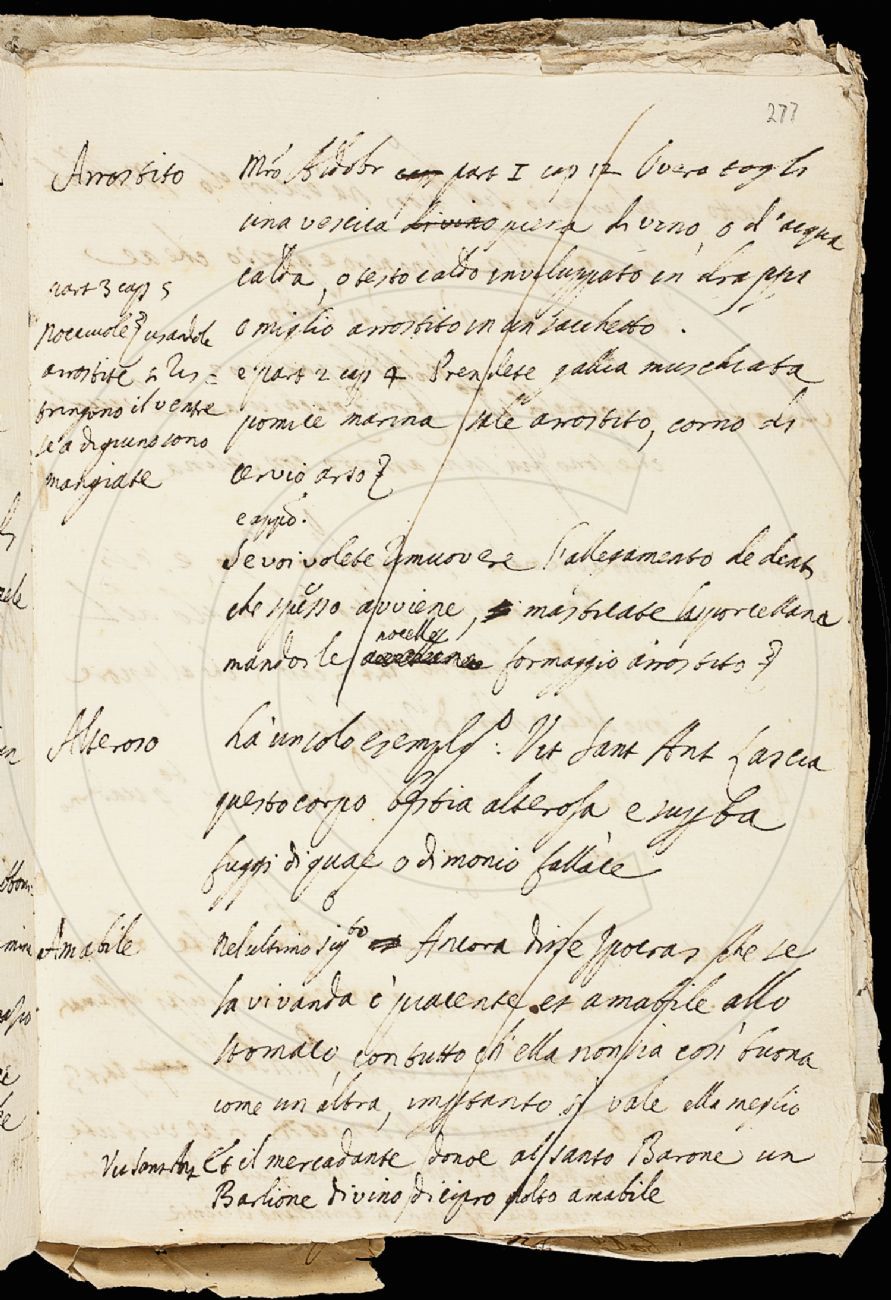 277
Arrostito
Mro Aldobr part I cap 12 Overo togli
una vescica di vino piena di vino, o d'acqua
calda, o testo caldo inviluppato in drappi
o miglio arrostito in un sacchetto.
e part 2 cap 4 Prendete gallia muschiata
pomice marina sale arrostito, corno di
cervio arso
e appo.
Se voi volete rimuovere l'allegamento de denti
che spesso avviene, masticate la porcellana
mandorle nocelle formaggio arrostito
part 3 cap 5
nocciuole usandole
arrostite e ris=
tringono il ventre
se a digiuno sono
mangiate
Alteroso
ha un solo esempl.o: Vit Sant Ant Lascia
questo corpo bestia alterosa e superba
fuggi di quae o dimonio fallace
Amabile
nel ultimo sig.to Ancora disse Ypocras che se
la vivanda è piacente et amabile allo
stomaco, con tutto ch'ella non sia così buona
come un'altra, impertanto si vale ella meglio
Vit Sant Ant
Et il mercadante donoe al santo Barone un
Barlione di vino di cipro molto amabile